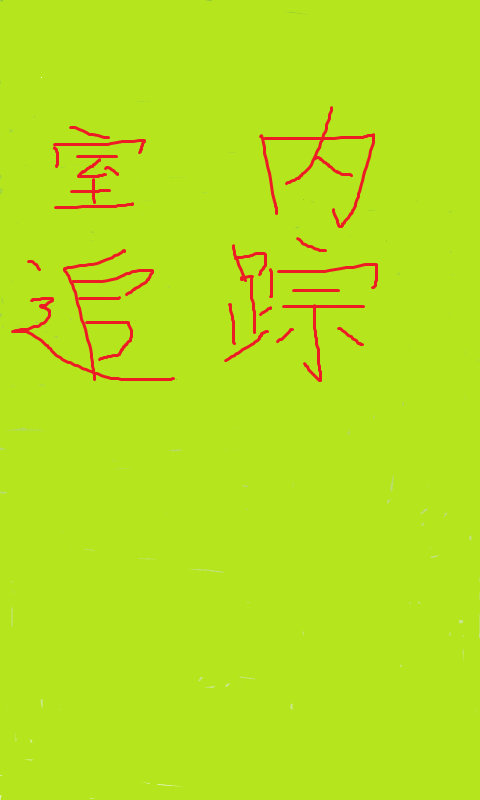 室内
追踪